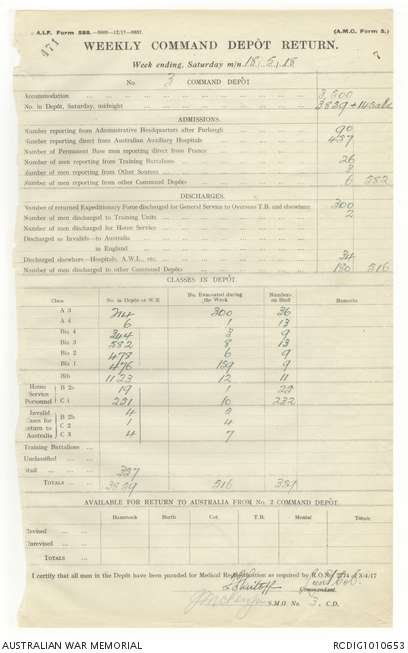 A.I.F. Form 588.
(A.M.C. Form 5.)
471
7
WEEKLY COMMAND DEPÔT RETURN.
Week ending, Saturday m/n 18.5.18
No. 3 COMMAND DEPÔT
Accommodation 3,500
No. in Depôt, Saturday, midnight 3839 +
ADMISSIONS.
Number reporting from Administrative Headquarters after Furlough 90
Number reporting direct from Australian Auxiliary Hospitals 457
Number of Permanent Base men reporting direct from France
Number of men reporting from Training Battalions 26
Number of men reporting from Other Sources 3
Number of men reporting from other Command Depôts 6 582
DISCHARGES.
Number of returned Expeditionary Force discharged for General Service to Overseas T.B. and elsewhere 300
Number of men discharged to Training Units 2
Number of men discharged for Home Service
Discharged as Invalids—to Australia
in England
Discharged elsewhere—Hospitals, A.W.L., etc. 34
Number of men discharged to other Command Depôts 180 516
CLASSES IN DEPÔT
Class No. in Depôt at W.E. No. Evacuated during the Week Numbers on Staff Remarks
A 3 214 300 36
A 4 6 1 13
B1a 4 344 3 9
B1a 3 552 8 13
B1a 2 478 6 9
B1a 1 476 159 9
B1b 1123 12 11
Home Service Personnel B 2b 19 1 22
C 1 221 10 232
Invalid Cases for return to Australia B 2b 4 5
C 2 1 4
C 3 4 7
Training Battalions
Unclassified
Staff 397
TOTALS 3839 516 354
AVAILABLE FOR RETURN TO AUSTRALIA FROM No. 2 COMMAND DEPÔT.
Hammock Berth Cot T.B. Mental Totals
Revised
Unrevised
TOTALS
I certify that all men in the Depôt have been paraded for Medical Reclassification as required by R.O. No. 3/4/17
Commandant
S.M.O No. 3. C.D.
AUSTRALIAN WAR MEMORIAL
RCDIG1010653